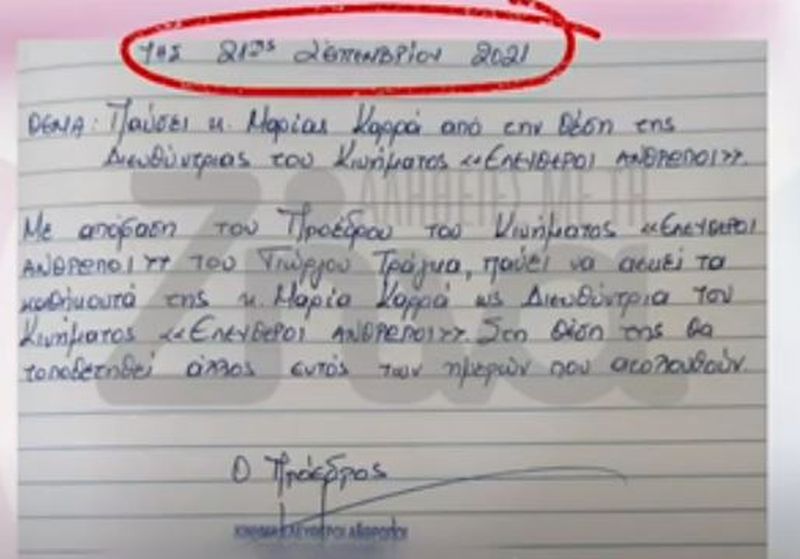 της 21ης Σεπτεμβρίου 2021
ΘΕΜΑ: Παύσει κ. Μαρίας Καρρά από την θέση της
Διευθύντριας του Κινήματος «ΕΛΕΥΘΕΡΟΙ ΑΝΘΡΩΠΟΙ».
Με απόφαση του Προέδρου του Κινήματος «ΕΛΕΥΘΕΡΟΙ
ΑΝΘΡΩΠΟΙ» του Γιώργου Τράγκα, παύει να ασκεί τα
καθήκοντά της κ. Μαρία Καρρά ως Διευθύντρια του
Κινήματος «ΕΛΕΥΘΕΡΟΙ ΑΝΘΡΩΠΟΙ». Στη θέση της θα
τοποθετηθεί άλλος εντός των ημερών που ακολουθούν.
Ο Πρόεδρος
ΚΙΝΗΜΑ ΕΛΕΥΘΕΡΟΙ ΑΝΘΡΩΠΟΙ
Ζήνα
ΑΛΗΘΕΙΕΣ ΜΕ ΤΗ